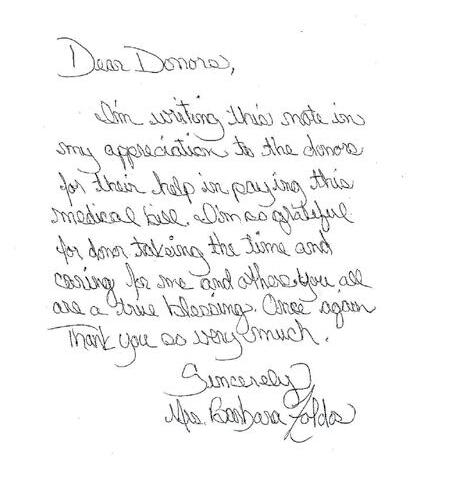 Dear Donors,
I'm writing this note in
my appreciation to the donors
for their help in paying this
medical bill. I'm so grateful
for donor taking the time and
caring for me and others you all
are a true blessing. Once again
Thank you so very much.
Sincerely
Mrs. Barbara